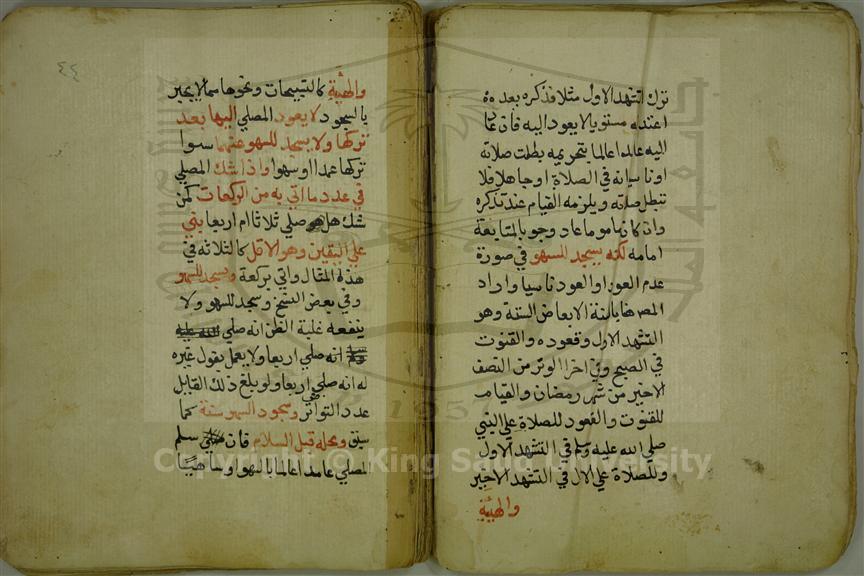 ترك التشهد الاول مثلا فذكره بعد
اعتداله مستويا لا يعود اليه فان عاد
اليه عامدا عالما بتحريمه بطلت صلاته
او ناسيا انه في الصلاة او جاهلا فلا
تبطل صلاته ويلزمه القيام عند تذكره
وان كان ماموما عاد وجوبا لمتابعة
امامه لكنه يسجد للسهو في صورة
عدم العود او العود ناسيا واراد
المص هنا بالسنة الابعاض الستة وهو
التشهد الاول وقعوده والقنوت
في الصبح وفي اخر الوتر من النصف
الاخير من شهر رمضان والقيام
للقنوت والقعود للصلاة على النبي
صلى الله عليه وسلم في التشهد الاول
وللصلاة على الال في التشهد الاخير
والهيئة
٤٤
والهيئة كالتسبيحات ونحوها مما لا يجبر
بالسجود لا يعود المصلي اليها بعد
تركها ولا يسجد للسهو عنها سوا
تركها عمدا او سهوا واذا شك المصلي
في عدد ما اتي به من الركعات كمن
شك هل صلي ثلاثا ام اربعا بني
علي اليقين وهو الاقل كالثلاثة في
هذه المقال واتي بركعة ويسجد للسهو
وفي بعض النسخ وسجد للسهو ولا
ينفعه غلبة الظن انه صلي
انه صلي اربعا ولا يعمل بقول غيره
له انه صلي اربعا ولو بلغ ذلك القايل
عدد التواتر وسجود السهو سنة كما
سبق ومحله قبل السلام فان سلم
المصلي عامدا عالما بالسهو او ساهيا
Copyright © King Saud University
1957